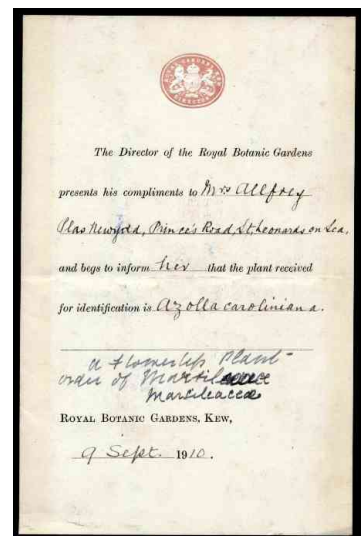 ROYAL GARDENS KEW
DIRECTOR
The Director of the Royal Botanic Gardens
presents his compliments to Mrs Allfrey
Plas Newydd, Prince's Road, St. Leonards on Sea,
and begs to inform her that the plant received
for identification is Azolla caroliniana.
a flowerless Plant
order of
Marsileaceae
ROYAL BOTANIC GARDENS, KEW,
9 Sept. 1910.